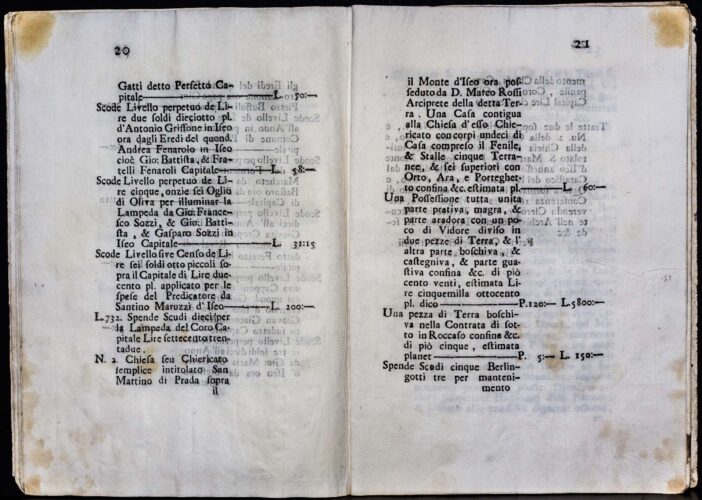 20
Gatti detto Perfetto Ca-
pitale L. 70:—
Scode Livello perpetuo de Li-
re due soldi dieciotto pl.
d'Antonio Griffone in Iseo
ora dagli Eredi del quond.
Andrea Fenarolo in Iseo
cioè Gio: Battista, & Fra-
telli Fenaroli Capitale L. 58:—
Scode Livello perpetuo de Li-
re cinque, onzie sei Oglio
di Oliva per illuminar la
Lampeda da Gio: France-
sco Sozzi, & Gio: Batti-
sta, & Gasparo Sozzi in
Iseo Capitale L. 31:15
Scode Livello sive Censo de Li-
re sei soldi otto piccoli so-
pra il Capitale di Lire due-
cento pl. applicato per le
spese del Predicatore da
Santino Maruzzi d'Iseo L. 200:—
L.732. Spende Scudi dieci per
la Lampeda del Coro Ca-
pitale Lire settecento tren-
tadue.
N. 2. Chiesa seu Chiericato
semplice intitolato San
Martino di Prada sopra
il
21
il Monte d'Iseo ora pos-
seduto da D. Marco Rossi
Arciprete della detta Ter-
ra. Una Casa contigua
alla Chiesa d'esso Chie-
ricato con corpi undeci di
Casa compreso il Fenile,
& Stalle cinque Terra-
nee, & sei superiori con
Orto, Ara, e Porteghet-
to confina &c. estimata pl. L. 60:—
Una Possessione tutta unita
parte prativa, magra, &
parte aradora con un po-
co di Vidore diviso in
due pezze di Terra, & l'
altra parte boschiva, &
castegniva, & parte gua-
stiva confina &c. di piò
cento venti, estimata Li-
re cinquemilla ottocento
pl. dico P.120:— L.5800:—
Una pezza di Terra boschi-
va nella Contrata di sot-
to in Roccaso confina &c.
di piò cinque, estimata
planet P. 5:— L. 150:—
Spende Scudi cinque Berlin-
gotti tre per manteni-
mento